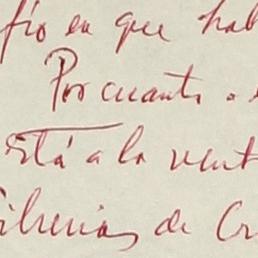 fío en que hab
Por cuanto a
está a la vent
ibrerías de Cr